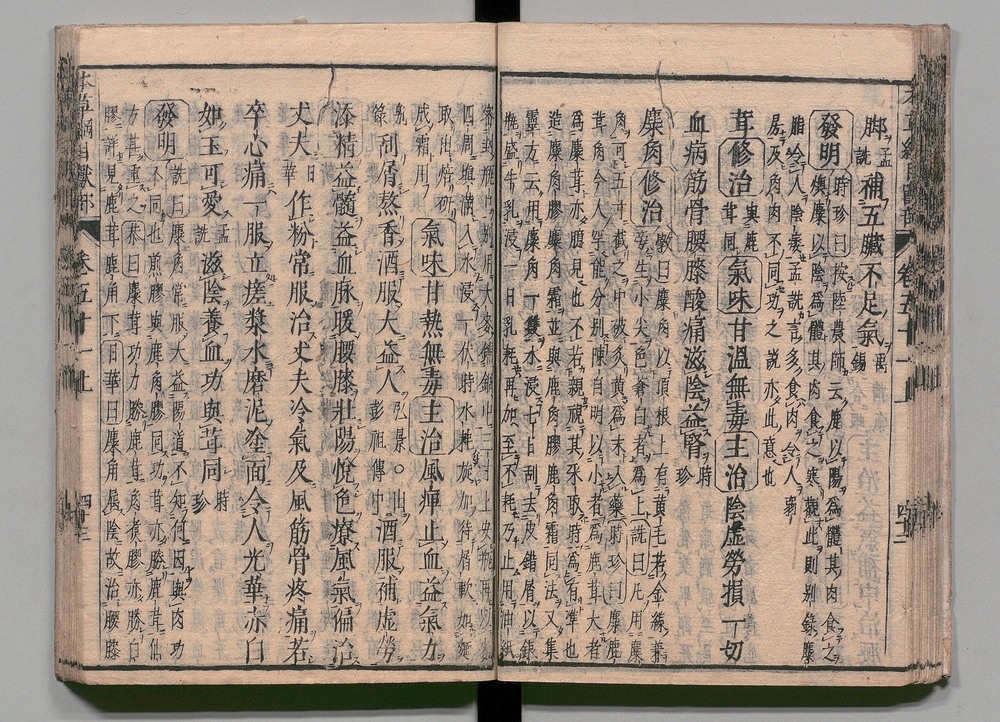 脚孟詵補五臟不足氣禹錫
發明時珍曰按陸農師云鹿以陽爲體其肉食之
燠麋以陰爲體其肉食之寒觀此則別録麋
脂令人陰痿孟詵言多食肉令人弱
房及角肉不同功之説亦此意也
茸修治與鹿茸同氣味甘溫無毒主治陰虛勞損一切
血病筋骨腰膝酸痛滋陰益腎時珍
麋角修治斅曰麋角以頂根上有黄毛若金線兼
旁生小尖色蒼白者爲上詵曰凡用麋
角可五寸截之中破炙黄爲末入藥時珍曰麋鹿
茸角今人罕能分別陳自明以小者爲鹿茸大者
爲麋茸亦臆見也不若親視其采取時爲有準也
造麋角膠麋角霜並與鹿角膠鹿角霜同法又集
靈方云用麋角一雙水浸七日刮去皮錯屑以銀
瓶盛牛乳浸一日乳耗再加至不耗乃止用油紙
密封瓶口別用大麥鋪鍋中三寸上安瓶再以麥
四周填滿入水浸一伏時水耗旋加待屑軟如麵
取出焙研
成霜用氣味甘熱無毒主治風痺止血益氣力
別録刮屑熬香酒服大益人弘景○出彭祖傳中酒服補虛勞
添精益髓益血脉暖腰膝壯陽悦色療風氣偏治
丈夫日華作粉常服治丈夫冷氣及風筋骨疼痛若
卒心痛一服立瘥漿水磨泥塗面令人光華赤白
如玉可愛孟詵滋陰養血功與茸同時珍
發明詵曰麋角常服大益陽道不知何因與肉功
不同也煎膠與鹿角膠同功茸亦勝鹿茸仙
方甚重之恭曰麋茸功力勝鹿茸角煮膠亦勝白
膠詳見鹿茸角下日華曰麋角屬陰故治腰膝